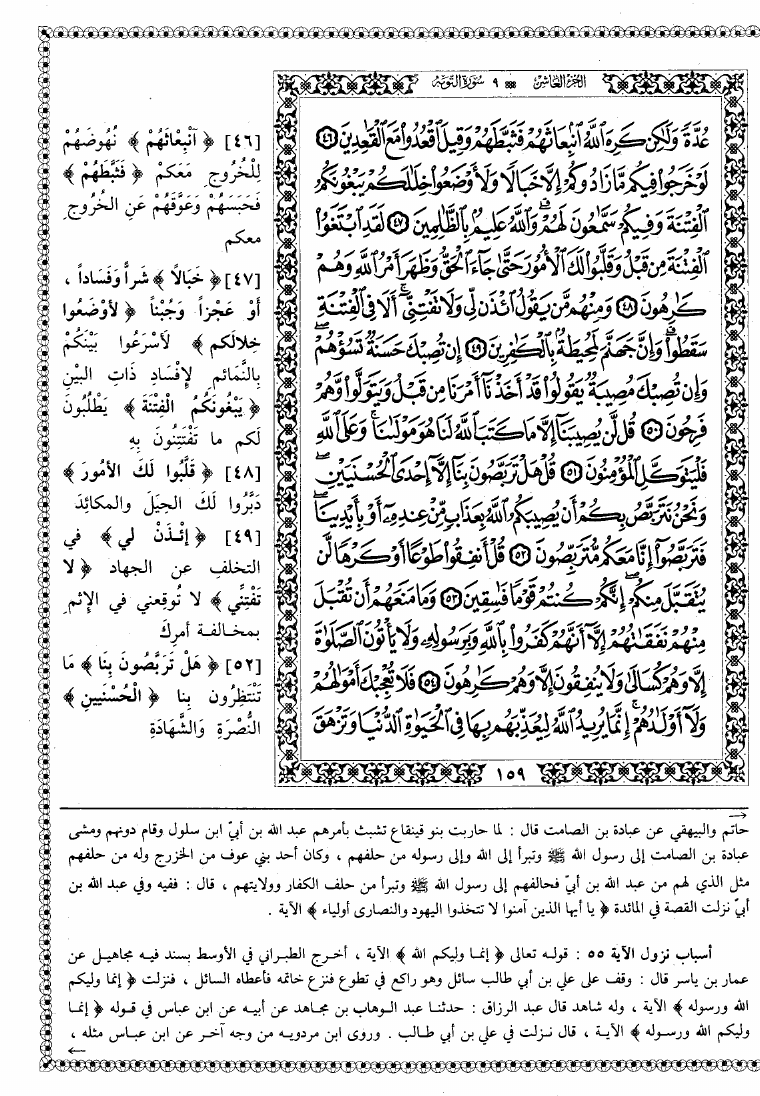 الجزء العاشر
٩ سورة التوبة
عُدَّةً وَلَٰكِن كَرِهَ ٱللَّهُ ٱنۢبِعَاثَهُمْ فَثَبَّطَهُمْ وَقِيلَ ٱقْعُدُوا۟ مَعَ ٱلْقَٰعِدِينَ ٤٦
لَوْ خَرَجُوا۟ فِيكُم مَّا زَادُوكُمْ إِلَّا خَبَالًا وَلَأَوْضَعُوا۟ خِلَٰلَكُمْ يَبْغُونَكُمُ
ٱلْفِتْنَةَ وَفِيكُمْ سَمَّٰعُونَ لَهُمْ ۗ وَٱللَّهُ عَلِيمٌۢ بِٱلظَّٰلِمِينَ ٤٧ لَقَدِ ٱبْتَغَوُا۟
ٱلْفِتْنَةَ مِن قَبْلُ وَقَلَّبُوا۟ لَكَ ٱلْأُمُورَ حَتَّىٰ جَآءَ ٱلْحَقُّ وَظَهَرَ أَمْرُ ٱللَّهِ وَهُمْ
كَٰرِهُونَ ٤٨ وَمِنْهُم مَّن يَقُولُ ٱئْذَن لِّى وَلَا تَفْتِنِّىٓ ۚ أَلَا فِى ٱلْفِتْنَةِ
سَقَطُوا۟ ۗ وَإِنَّ جَهَنَّمَ لَمُحِيطَةٌۢ بِٱلْكَٰفِرِينَ ٤٩ إِن تُصِبْكَ حَسَنَةٌ تَسُؤْهُمْ ۖ
وَإِن تُصِبْكَ مُصِيبَةٌ يَقُولُوا۟ قَدْ أَخَذْنَآ أَمْرَنَا مِن قَبْلُ وَيَتَوَلَّوا۟ وَّهُمْ
فَرِحُونَ ٥٠ قُل لَّن يُصِيبَنَآ إِلَّا مَا كَتَبَ ٱللَّهُ لَنَا هُوَ مَوْلَىٰنَا ۚ وَعَلَى ٱللَّهِ
فَلْيَتَوَكَّلِ ٱلْمُؤْمِنُونَ ٥١ قُلْ هَلْ تَرَبَّصُونَ بِنَآ إِلَّآ إِحْدَى ٱلْحُسْنَيَيْنِ ۖ
وَنَحْنُ نَتَرَبَّصُ بِكُمْ أَن يُصِيبَكُمُ ٱللَّهُ بِعَذَابٍ مِّنْ عِندِهِۦٓ أَوْ بِأَيْدِينَا ۖ
فَتَرَبَّصُوٓا۟ إِنَّا مَعَكُم مُّتَرَبِّصُونَ ٥٢ قُلْ أَنفِقُوا۟ طَوْعًا أَوْ كَرْهًا لَّن
يُتَقَبَّلَ مِنكُمْ ۖ إِنَّكُمْ كُنتُمْ قَوْمًا فَٰسِقِينَ ٥٣ وَمَا مَنَعَهُمْ أَن تُقْبَلَ
مِنْهُمْ نَفَقَٰتُهُمْ إِلَّآ أَنَّهُمْ كَفَرُوا۟ بِٱللَّهِ وَبِرَسُولِهِۦ وَلَا يَأْتُونَ ٱلصَّلَوٰةَ
إِلَّا وَهُمْ كُسَالَىٰ وَلَا يُنفِقُونَ إِلَّا وَهُمْ كَٰرِهُونَ ٥٤ فَلَا تُعْجِبْكَ أَمْوَٰلُهُمْ
وَلَآ أَوْلَٰدُهُمْ ۚ إِنَّمَا يُرِيدُ ٱللَّهُ لِيُعَذِّبَهُم بِهَا فِى ٱلْحَيَوٰةِ ٱلدُّنْيَا وَتَزْهَقَ
١٥٩
[٤٦] ﴿ ٱنْبِعَاثَهُمْ ﴾ نُهُوضَهُمْ
لِلْخُرُوجِ مَعَكُمْ ﴿ فَثَبَّطَهُمْ ﴾
فَحَبَسَهُمْ وَعَوَّقَهُمْ عَنِ الخُروجِ
معكم
[٤٧] ﴿ خَبَالاً ﴾ شَراً وَفَسَاداً ،
أَوْ عَجْزاً وَجُبْناً ﴿ لأَوْضَعُوا
خِلالَكم ﴾ لَأسْرَعُوا بَيْنَكُمْ
بِالنَّمائِمِ لإِفْسَادِ ذَاتِ البَيْنِ
﴿ يَبْغُونَكُمُ الْفِتْنَةَ ﴾ يَطْلُبُونَ
لَكم ما تَفْتَتِنُونَ بِهِ
[٤٨] ﴿ قَلَّبُوا لَكَ الأمُورَ ﴾
دَبَّرُوا لَكَ الحِيَلَ والمكائِدَ
[٤٩] ﴿ إئْذَنْ لي ﴾ في
التخلف عن الجهاد ﴿ لا
تَفْتِنِّي ﴾ لا تُوقعني في الإثم
بمخالفة أمرِكَ
[٥٢] ﴿ هَلْ تَرَبَّصُونَ بِنَا ﴾ مَا
تَنْتَظِرُون بنا ﴿ الْحُسْنَيينِ ﴾
النُّصْرَةِ وَالشَّهَادَةِ
حاتم والبيهقي عن عبادة بن الصامت قال : لما حاربت بنو قينقاع تشبث بأمرهم عبد الله بن أبيّ ابن سلول وقام دونهم ومشى
عبادة بن الصامت إلى رسول الله ﷺ وتبرأ إلى الله وإلى رسوله من حلفهم ، وكان أحد بني عوف من الخزرج وله من حلفهم
مثل الذي لهم من عبد الله بن أبيّ فحالفهم إلى رسول الله ﷺ وتبرأ من حلف الكفار وولايتهم ، قال : ففيه وفي عبد الله بن
أبيّ نزلت القصة في المائدة ﴿ يا أيها الذين آمنوا لا تتخذوا اليهود والنصارى أولياء ﴾ الآية .
أسباب نزول الآية ٥٥ : قوله تعالى ﴿ إنما وليكم الله ﴾ الآية ، أخرج الطبراني في الأوسط بسند فيه مجاهيل عن
عمار بن ياسر قال : وقف على علي بن أبي طالب سائل وهو راكع في تطوع فنزع خاتمه فأعطاه السائل ، فنزلت ﴿ إنما وليكم
الله ورسوله ﴾ الآية ، وله شاهد قال عبد الرزاق : حدثنا عبد الوهاب بن مجاهد عن أبيه عن ابن عباس في قوله ﴿ إنما
وليكم الله ورسوله ﴾ الآية ، قال نزلت في علي بن أبي طالب . وروى ابن مردويه من وجه آخر عن ابن عباس مثله ،